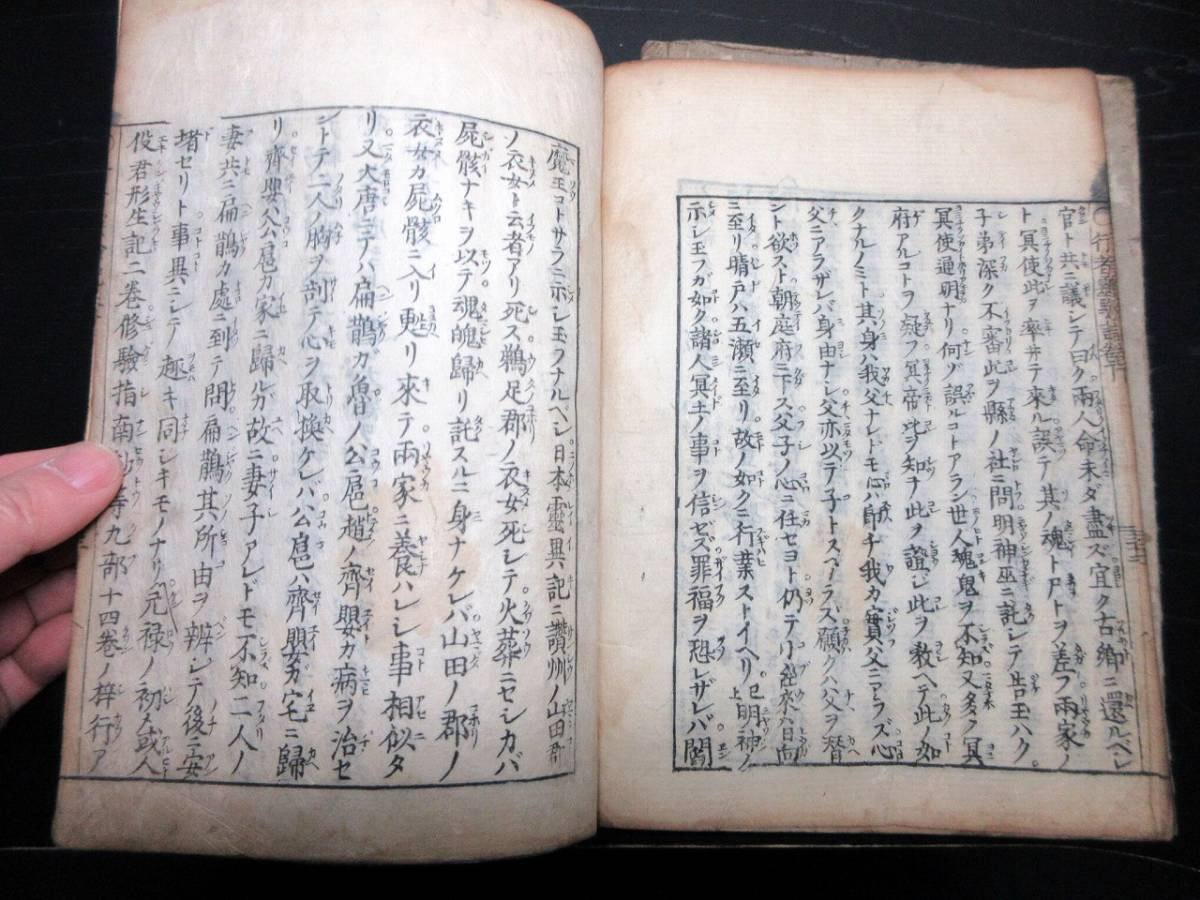 官ト共ニ議シテ曰ク兩人命未ダ盡ズ宜ク古郷ニ還ルベシ
ト冥使此ヲ率井テ來ル誤テ其ノ魂ト尸トヲ差フ兩家ノ
子弟深ク不審此ヲ縣ノ社ニ問明神巫ニ託シテ告玉ハク。
冥使通明ナリ何ゾ誤ルコトアラン世人魂鬼ヲ不知又多ク冥
府アルコトヲ疑フ冥帝此ヲ知ナ此ヲ證シ此ヲ教ヘテ此ノ如
クナルノミト其身ハ我父ナレトモ心ハ卽チ我カ實父ニアラズ心
父ニアラザレバ身由ナシ父亦以テ子トスベカラズ願クハ父ヲ替
ント欲スト朝庭府ニ下ス父子ノ心ニ任セヨト仍テ
ニ至リ晴戸ハ五瀬ニ至リ故ノ如クニ行業ストイヘリ已上明神ノ
示シ玉フガ如ク諸人冥土ノ事ヲ信ゼズ罪福ヲ恐レザレバ閻
魔王コトサラニ示シ玉フナルベシ日本靈異記ニ讃州ノ山田郡
ノ衣女ト云者アリ死ス鵜足郡ノ衣女死シテ火葬ニセシカバ
屍骸ナキヲ以テ魂魄歸リ託スルニ身ナケレバ山田ノ郡ノ
衣女カ屍骸ニ入リ更リ來テ兩家ニ養ハレシ事相似タ
リ又大唐ニテハ扁鵲ガ魯ノ公扈趙ノ齊嬰カ病ヲ治セ
ントテ二人ノ胸ヲ剖テ心ヲ取換ケレバ公扈ハ齊嬰ガ宅ニ歸
リ齊嬰ハ公扈カ家ニ歸ルガ故ニ妻子アレドモ不知二人ノ
妻共ニ扁鵲カ處ニ到テ問扁鵲其所由ヲ辨シテ後ニ安
堵セリト事異ニシテ趣キ同シキモノナリ元禄ノ初メ或人
役君形生記二卷修驗指南鈔等九部十四卷ノ梓行ア